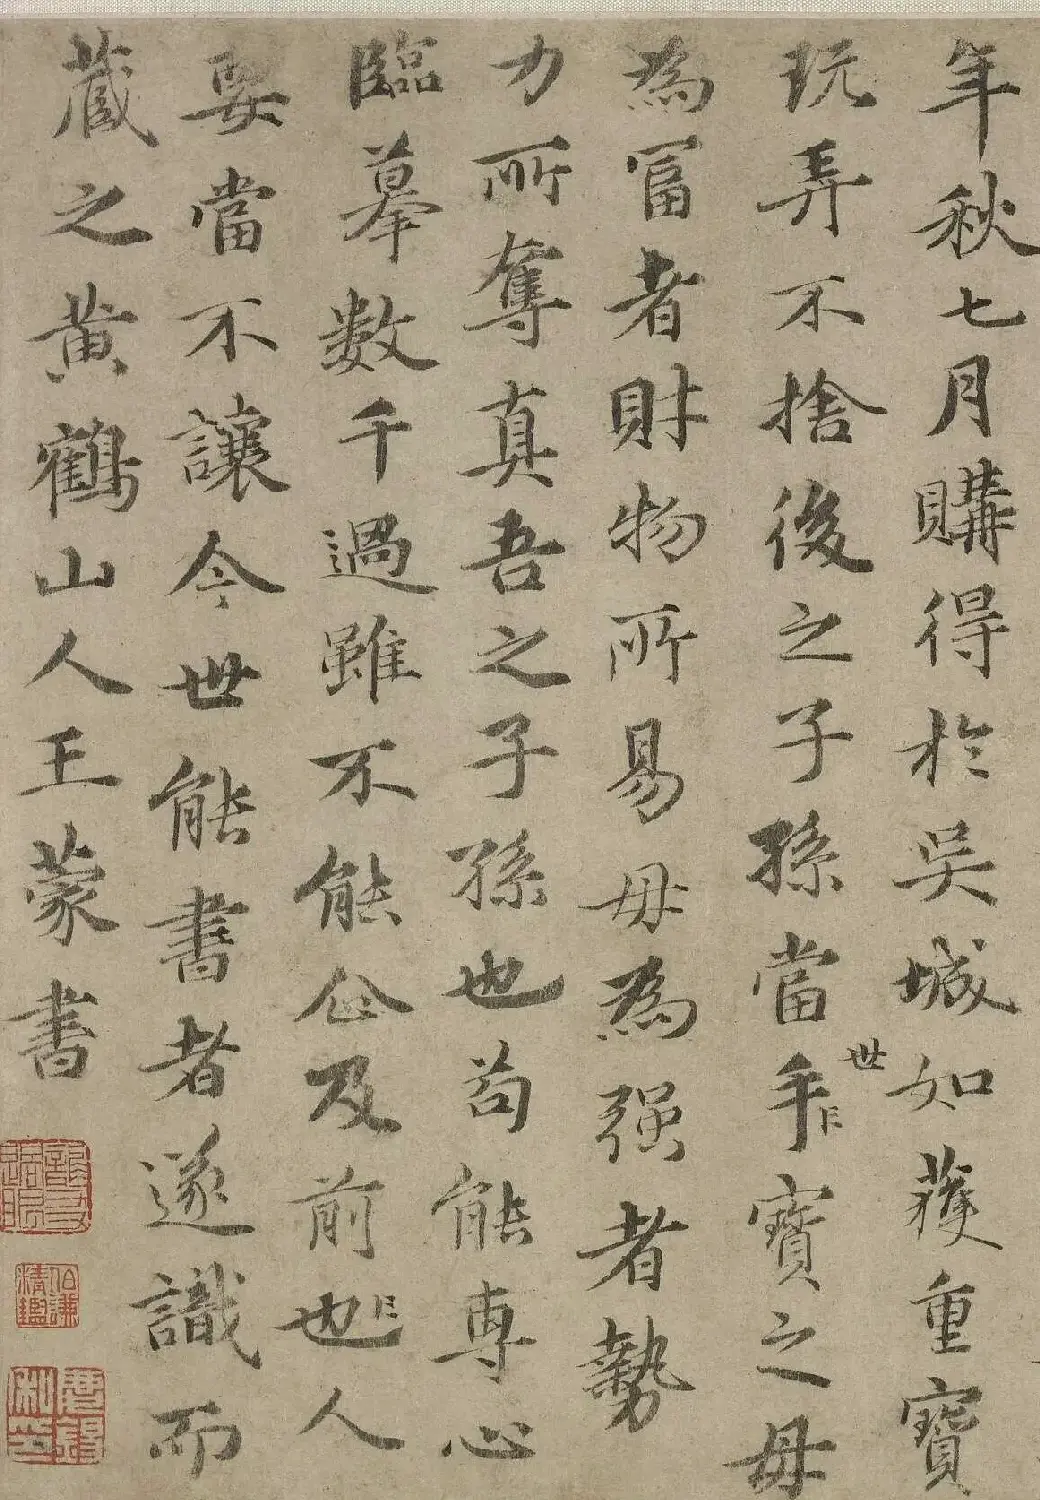 年秋七月購得於吳城如獲重寶
玩弄不捨後之子孫當手世寶之毋
為富者財物所易毋為强者勢
力所奪真吾之子孫也苟能專心
臨摹数千過雖不能企及前也人
要當不讓今世能書者遂識而
藏之黄鶴山人王蒙書
伯謙
精鑑